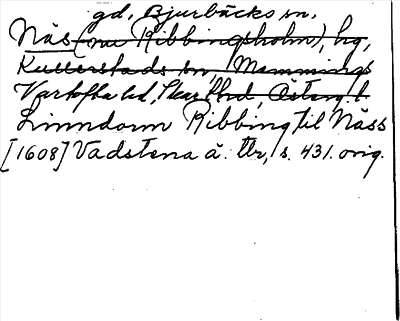 gd, Bjurbäcks sn,
Näs (nu Ribbingsholm), hg,
Kullerstads sn, Memmings
Vartofta hd, Skar. hd, Österg. l.
Linndorm Ribbing til Näss
[1608] Vadstena ä. tbr, s. 431. orig.